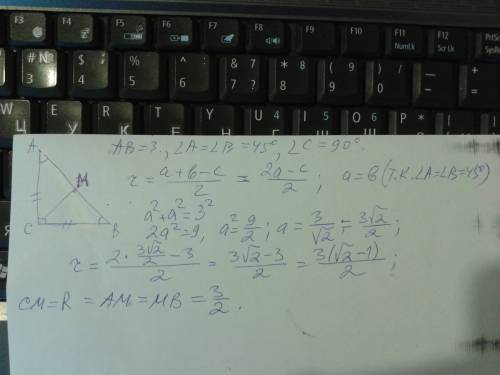 F3 F4 F5 F6 F7 F8 F9 F10 F11 NumLk F12 Scr Lk PrtSc
№ 3 $ ; 4 % 5 ^ : 6 & ? 7 * 8 ( 9 ) 0 / — - + =
W E R T Y U 4 I 5 O 6 P
A AB=3., ∠A=∠B=45°, ∠C=90°.
r = (a+b-c)/2 = (2a-c)/2 ; a=b (т.к. ∠A=∠B=45°)
M
a²+a²=3²
C B 2a²=9, a²=9/2; a=3/√2=3√2/2;
r = (2·3√2/2-3)/2 = (3√2-3)/2 = 3(√2-1)/2;
CM=R=AM=MB=3/2.